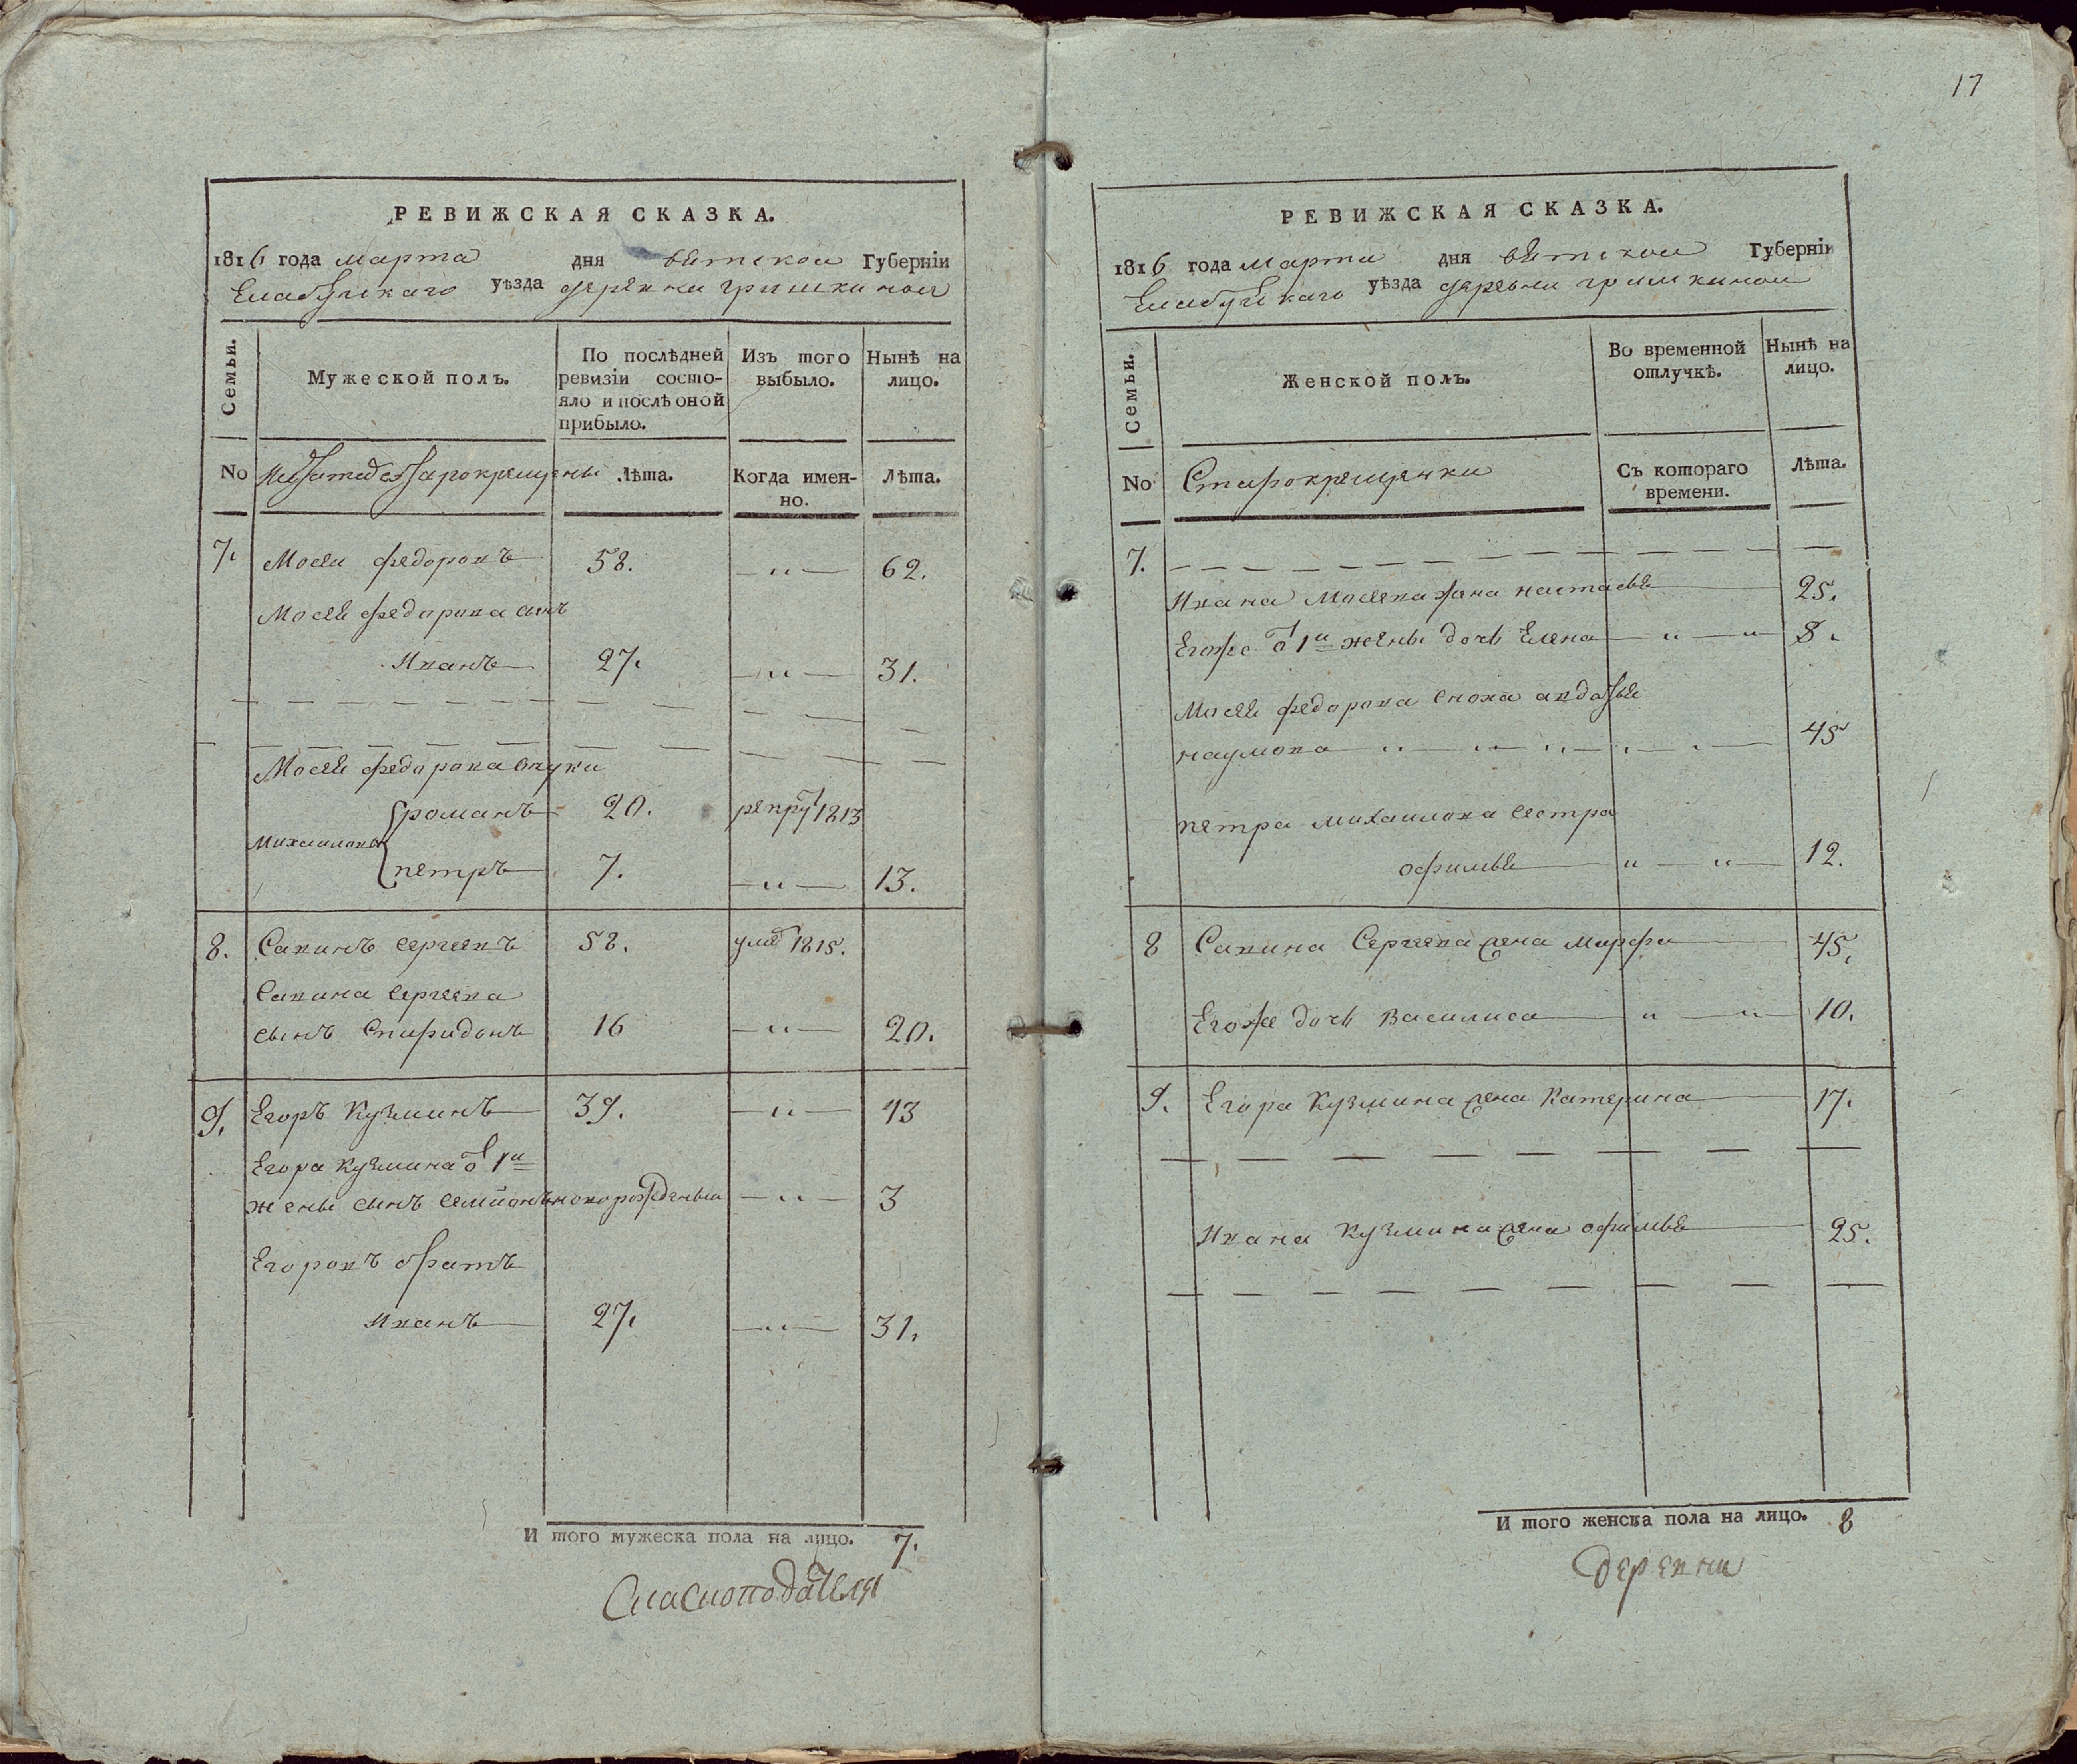 РЕВИЖСКАЯ СКАЗКА.
1816 года марта дня вятской Губерніи
Елабугскаго уѣзда деревни гришкиной
Семьи.
Мужеской полъ.
По послѣдней ревизіи состо-
яло и послѣ оной
прибыло.
Изъ того
выбыло.
Нынѣ на
лицо.
No
старокрещены
Лѣта.
Когда имен-
но.
Лѣта.
7. Мосеи федоровъ 58. — " — 62.
Мосея федорова сынъ
Иванъ 27. — " — 31.
Мосея федорова внуки
Михаиловы
романъ 20. рекру 1813
петръ 7. — " — 13.
8. Савинъ сергеевъ 58. умѐ 1815.
Савина сергеева
сынъ Спиридонъ 16 — " — 20.
9. Егоръ Кузминъ 39. — " — 43
Егора Кузмина о 1й
жены сынъ семионъ новорожденыи — " — 3
Егоровъ братъ
Иванъ 27. — " — 31.
И того мужеска пола на лицо. 7.
17
РЕВИЖСКАЯ СКАЗКА.
1816 года марта дня вятской Губерніи
Елабугскаго уѣзда деревни гришкиной
Семьи.
Женской полъ.
Во временной
отлучкѣ.
Нынѣ на
лицо.
No
Старокрещенки
Съ котораго
времени.
Лѣта.
7.
Ивана Мосеева жена настасья 25.
Егоже о 1й жены дочь Елена — " — " 8.
Мосея федорова сноха авдотья
наумова 45
петра михаилова сестра
офимья — " — " — 12.
8 Савина Сергеева жена Марфа 45.
Егоже дочь Василиса " — " — 10.
9. Егора Кузмина жена Катерина 17.
Ивана Кузмина жена офимья 25.
И того женска пола на лицо. 8
деревни